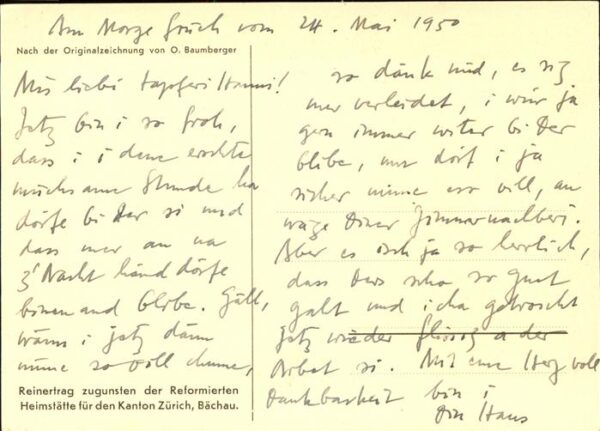 Am Morge früeh vom 24. Mai 1950
Nach der Originalzeichnung von O. Baumberger
Mis liebi tapferi Hanni!
Jetz bin i so froh,
dass i i dene erschte
müehsame Stunde ha
dörfe bi der si und
dass mer au na
z'Nacht händ dörfe
binenand blibe. Gäll,
wänn i jetz dänn
nüme so vill chume,
Reinertrag zugunsten der Reformierten
Heimstätte für den Kanton Zürich, Bächau.
so dänk nüd, es sig
mer verleidet, i wür ja
gern immer witer bi der
blibe, nur dörf i ja
sicher nüme eso vill, au
wäge diner Zimmernachberi.
Aber es isch ja so herrlich,
dass ders scho so guet
gaht und i cha getroscht
jetz wieder flissig a der
Arbet si. Mit eme Herz voll
Dankbarkeit bin i
Din Hans